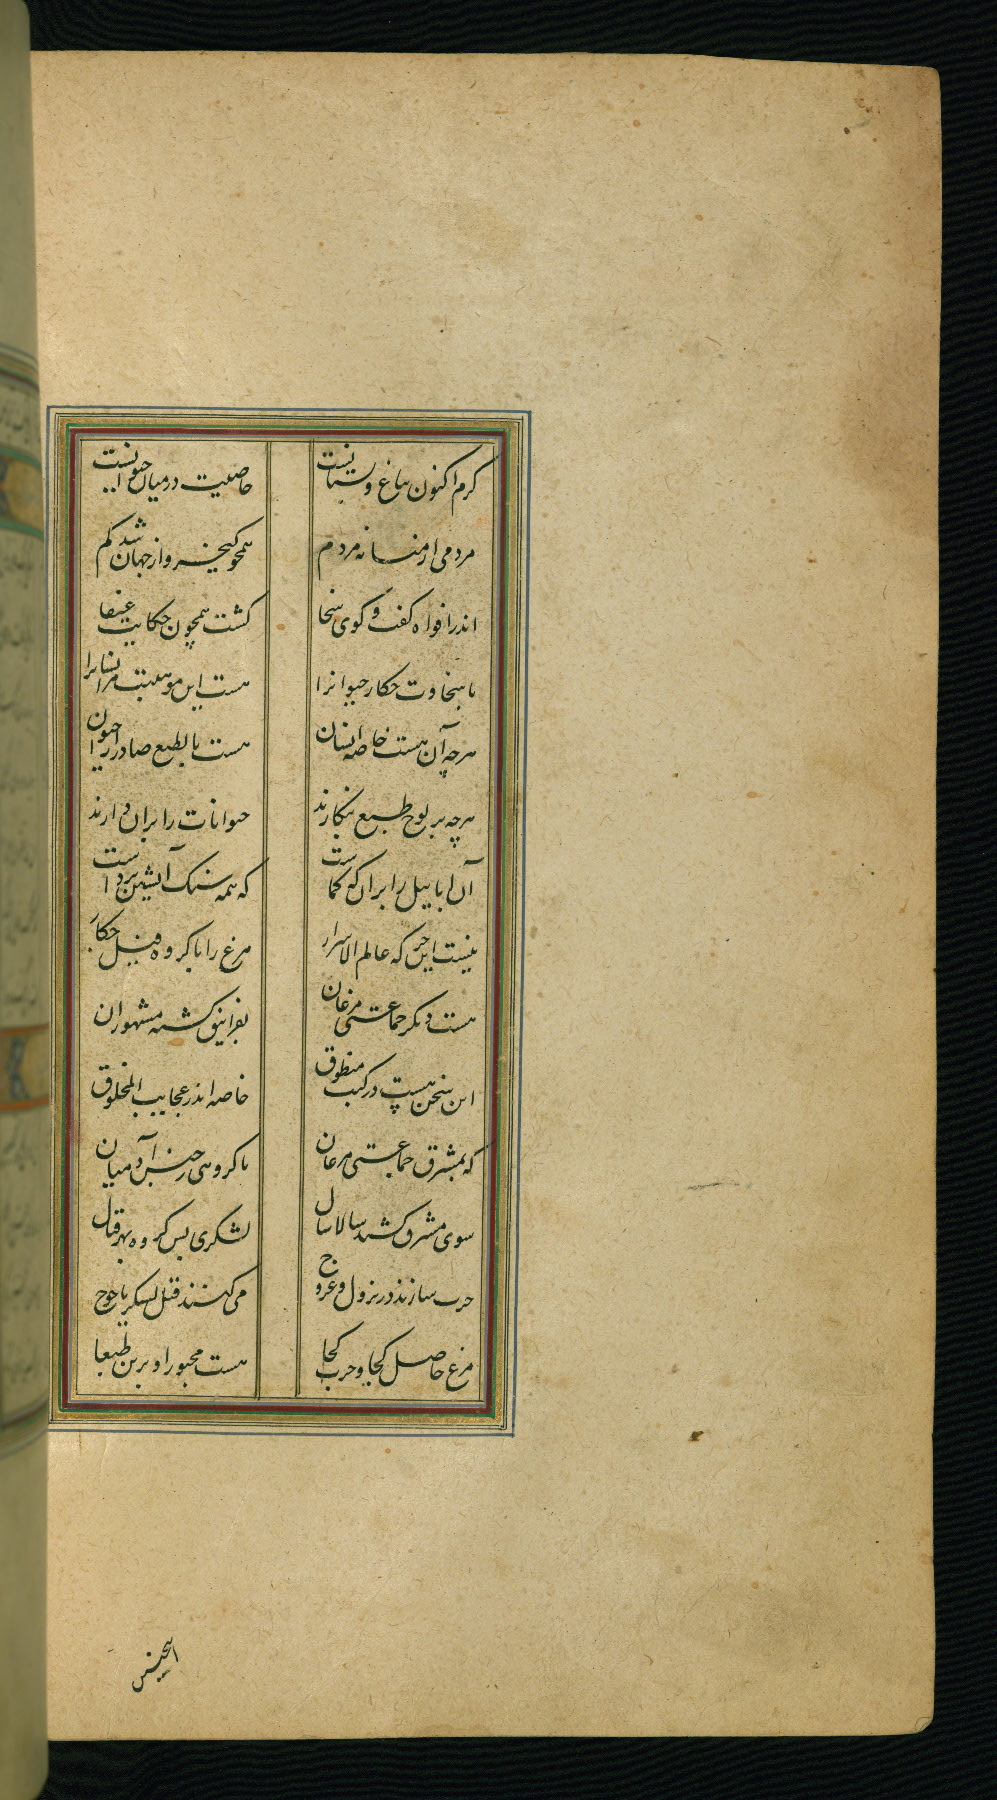 کرم اکنون بباغ و بستا نیست
خاصیت در میان حیوا نیست
مردمی از منسا نه مردم
همچو کیخسرو از جهان شد کم
اندر افواه گفت و کوی سخا
کشت همچون حکایت عنقا
با سخاوت حکار حیوانرا
هست این موهبت مر انسانرا
هرچه آن هست خاصه انسان
هست بالطبع صادر از حیوان
هرچه بر لوح طبع بنکارند
حیوانات را بران دارند
آن ابابیل را بران که کماست
که همه سنک آتشین برداست
نیست این جز که عالم الاسرار
مرغ را با کروه فیل چکار
هست دیکر جماعتی مرغان
بغرانیق کشته مشهوران
این سخن هست در کتب منطوق
خاصه اندر عجایب المخلوق
که بمشرق جماعتی مرغان
با کروهی ز جنس آدمیان
سوی مشرق کشند سالا سال
لشکری بس کروه بهر قتال
حرب سازند در نزول و عروج
می کنند قتل لسکر یاجوج
مرغ حاصل کجا و حرب کجا
هست مجبور او برین طبعا
اینچنین